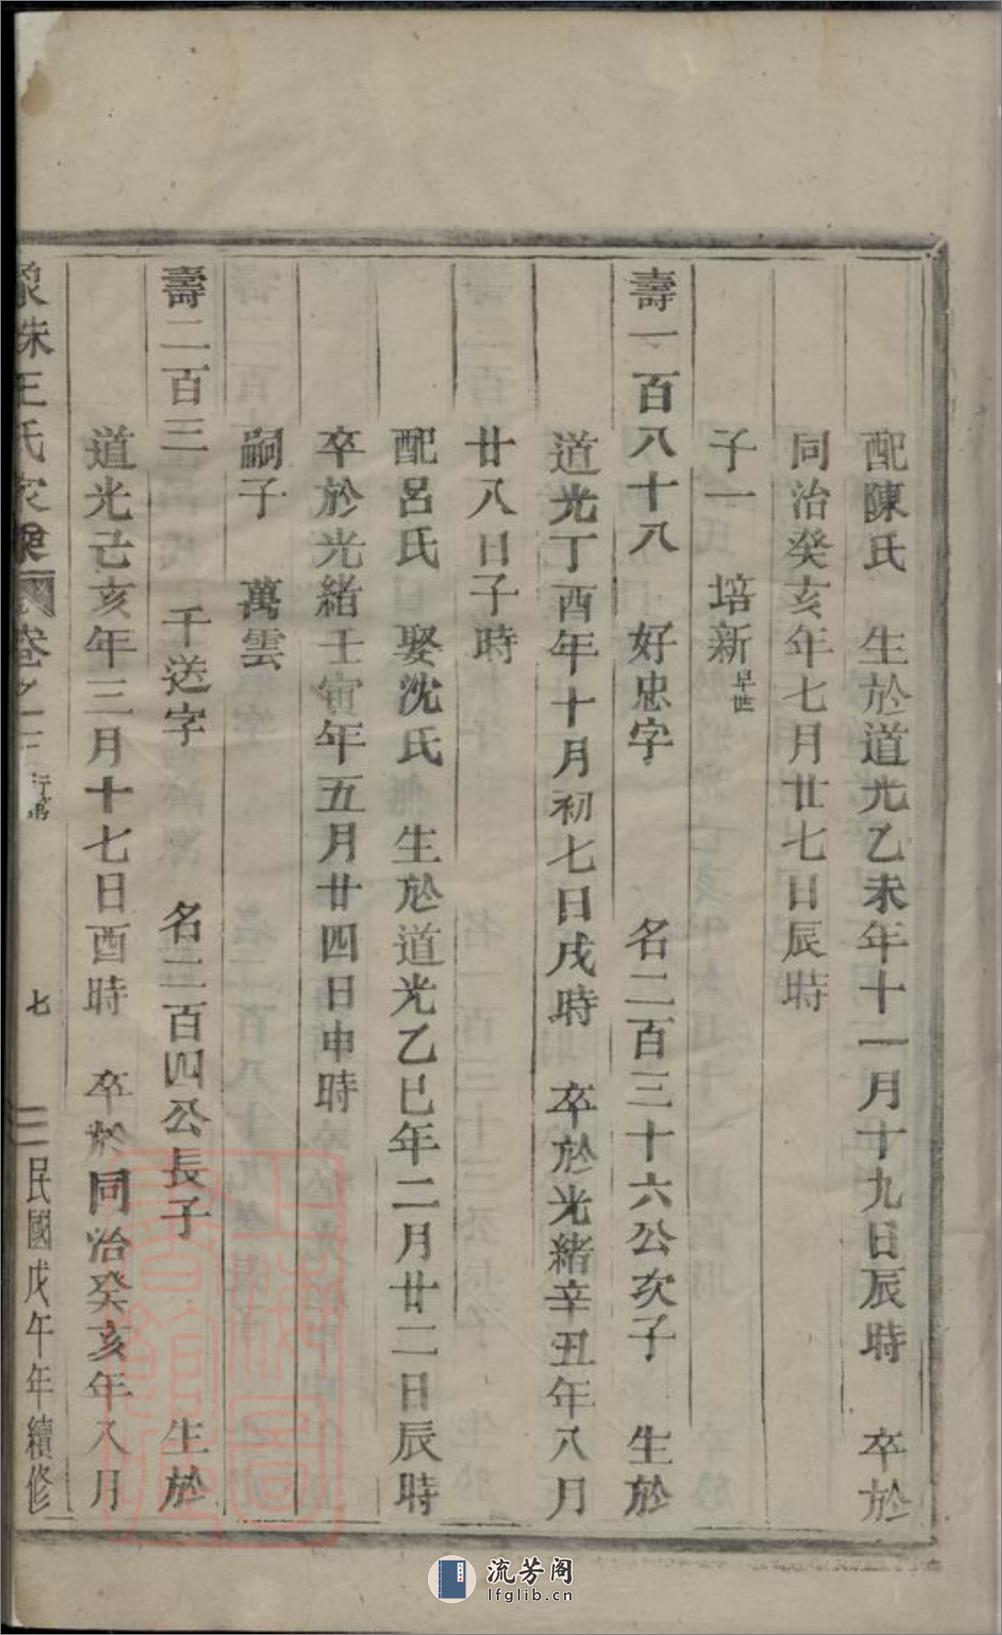 配陳氏　生於道光乙未年十一月十九日辰時　卒於
同治癸亥年七月廿七日辰時
子一　培新早世
壽一百八十八　好忠字　名二百三十六公次子　生於
道光丁酉年十月初七日戌時　卒於光緒辛丑年八月
廿八日子時
配呂氏　娶沈氏　生於道光乙巳年二月廿二日辰時
卒於光緒壬寅年五月廿四日申時
嗣子　萬雲
壽二百三　千送字　名二百四公長子　生於
道光己亥年三月十七日酉時　卒於同治癸亥年八月
王氏家乘　卷之　行第　七　民國戊午年續修
流芳阁
lfglib.cn